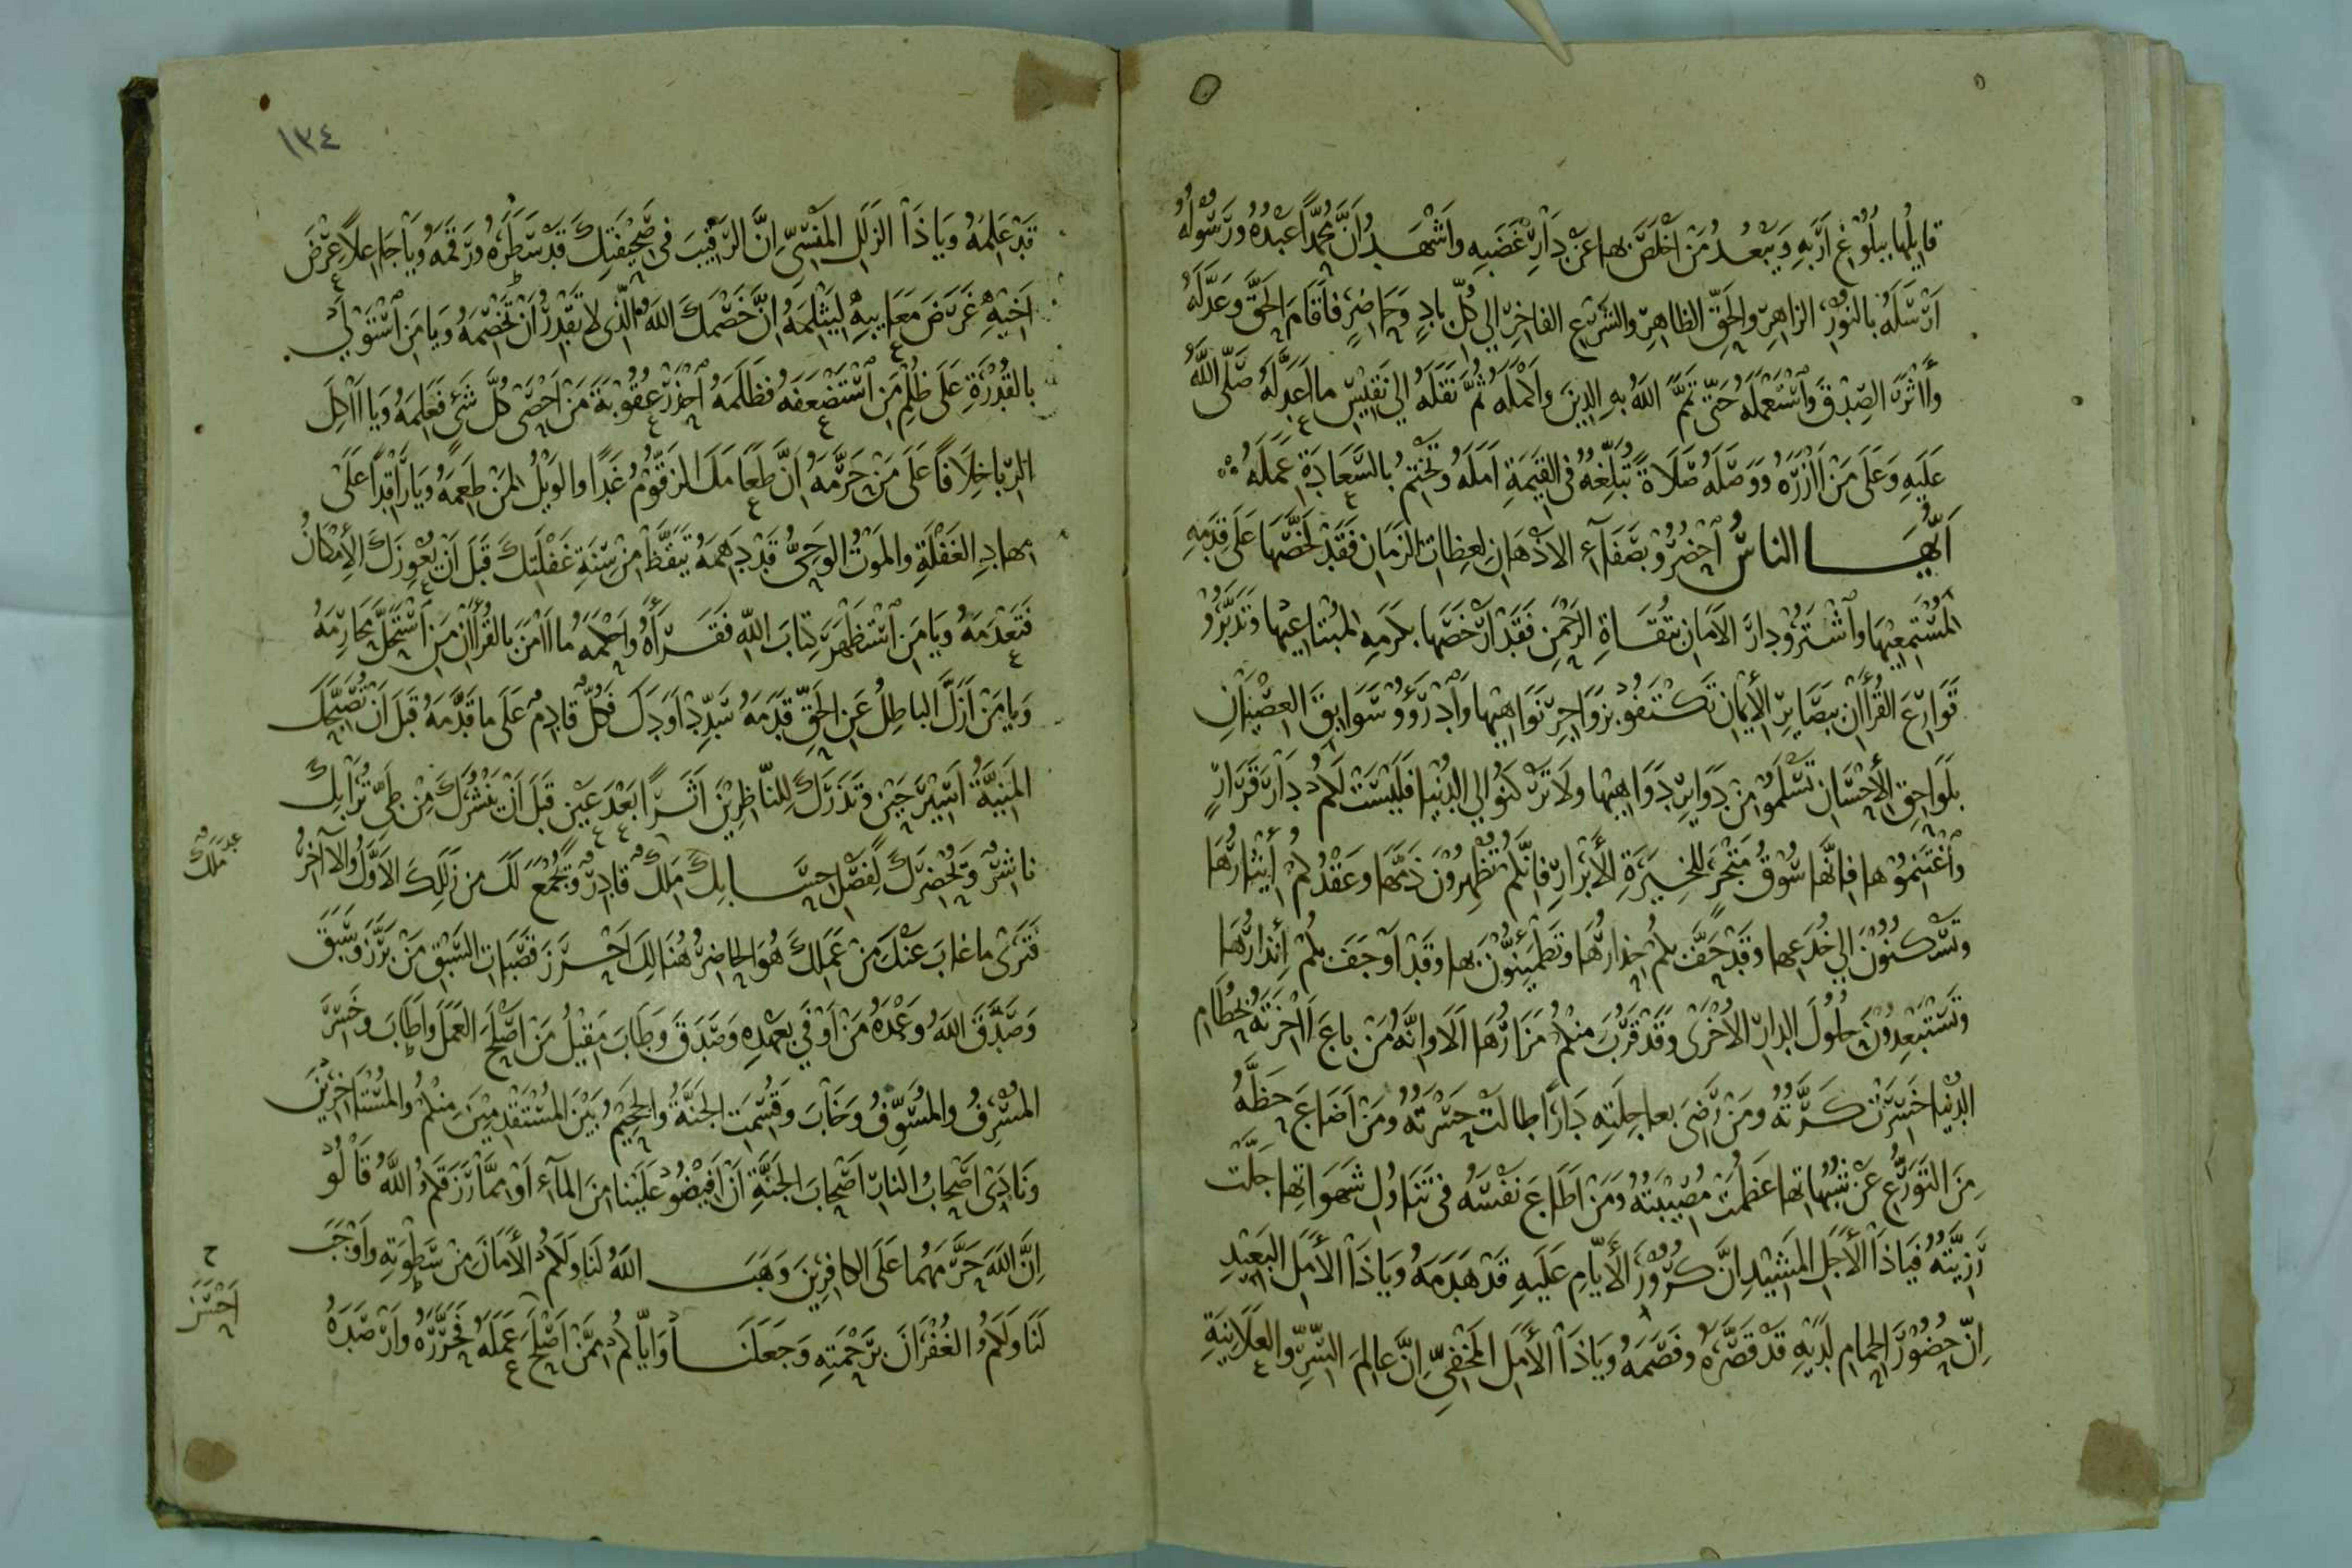 قايلها ببلوغ اربه ويبعد من اخلص بها عن دار غضبه واشهد ان محمدا عبده ورسوله
ارسله بالنور الزاهر والحق الظاهر والشرع الفاخر الي كل باد وحاضر فاقام الحق وعدله
وااثر الصدق واستعمله حتى تمم الله به الدين واكمله ثم نقله الي نفيس ما اعد له صلى الله
عليه وعلى من اازره ووصله صلاة تبلغه في القيمة امله وتختم بالسعادة عمله
ايها الناس احضرو بصفاء الاذهان لعظات الزمان فقد لخصها على قدمه
لمستمعيها واشترو دار الامان بتقاة الرحمن فقد ارخصها بكرمه لمبتاعيها وتدبرو
قوارع القراان ببصاير الايمان تكتفو بزواجر نواهيها وادرؤو سوابق العصيان
بلواحق الاحسان تسلمو من دواير دواهيها ولا تركنو الي الدنيا فليست لكم دار قرار
واغتنموها فانها سوق متجر للخيرة الابرار فانكم تظهرون ذمها وعقدكم ايثارها
وتسكنون الي خدعها وقد حف بكم حذارها وتطمينون بها وقد اوجف بكم انذارها
وتستبعدون حلول الدار الاخرى وقد قرب منكم مزارها الا وانه من باع ااخرته بحطام
الدنيا خسرت كرته ومن رضى بعاجلته دارا طالت حسرته ومن اضاع حظه
من التورع عن شبهاتها عظمت مصيبته ومن اطاع نفسه في تناول شهواتها جلت
رزيته فياذا الاجل المشيد ان كرور الايام عليه قد هدمه وياذا الامل البعيد
ان حضور الحمام لديه قد قصره وفصمه وياذا الامل المخفي ان عالم السر والعلانية
١٣٤
قد علمه وياذا الزلل المنسي ان الرقيب في صحيفتك قد سطره ورقمه ويا جاعلا عرض
اخيه غرض معايبه ليثلمه ان خصمك الله الذي لا تقدر ان تخصمه ويا من استولي
بالقدرة على ظلم من استضعفه فظلمه احذر عقوبة من احصى كل شئ فعلمه ويا ااكل
الربا خلافا على من حرمه ان طعامك الزقوم غدا والويل لمن طعمه ويا راقدا على
مهاد الغفلة والموت الوحي قد دهمه تيقظ من سنة غفلتك قبل ان يعوزك الامكان
فتعدمه ويا من استظهر كتاب الله فقراه واحكمه ما اامن بالقراان من استحل محارمه
ويا من ازل الباطل عن الحق قدمه سدد اودك فكل قادم على ما قدمه قبل ان تصبحك
المنية اسير حين وتذرك للناظرين اثرا بعد عين قبل ان ينشرك من طي ترابك
ناشر وتحضرك لفصل حسابك ملك قادر وتجمع لك من زللك الاول والاآخر
عدد ملك
فترى ما غاب عنك من عملك هو الحاضر هنالك احرز قصبات السبق من برز وسبق
وصدق الله وعده من اوفي بعهده وصدق وطاب مقيل من اصلح العمل واطاب وخسر
المسرف والمسوف وخاب وقسمت الجنة والجحيم بين المستقدمين منكم والمستاخرين
ونادى اصحاب النار اصحاب الجنة ان افيضو علينا من الماء او مما رزقكم الله قالو
ان الله حرمهما على الكافرين وهب الله لنا ولكم الامان من سطوته واوجب
ح
لنا ولكم الغفران برحمته وجعلنا واياكم ممن اصلح عمله فحرره وارصده